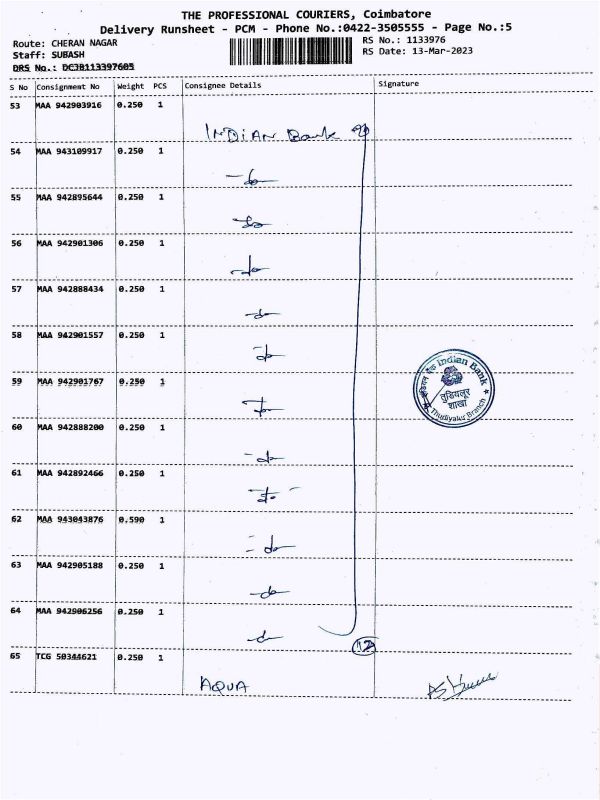 THE PROFESSIONAL COURIERS, Coimbatore
Delivery Runsheet - PCM - Phone No.:0422-3505555 - Page No.:5
Route: CHERAN NAGAR
Staff: SUBASH
DRS No.: DCJB113397605
RS No.: 1133976
RS Date: 13-Mar-2023
S No Consignment No Weight PCS Consignee Details Signature
53 MAA 942903916 0.250 1
INDIAN Bank
54 MAA 943109917 0.250 1
-do-
55 MAA 942895644 0.250 1
-do-
56 MAA 942901306 0.250 1
-do-
57 MAA 942888434 0.250 1
-do-
58 MAA 942901557 0.250 1
-do-
59 MAA 942901767 0.250 1
-do-
60 MAA 942888200 0.250 1
-do-
61 MAA 942892466 0.250 1
-do-
62 MAA 943043876 0.590 1
-do-
63 MAA 942905188 0.250 1
-do-
64 MAA 942906256 0.250 1
-do-
12
इंडियन बैंक Indian Bank
तुडियलूर
शाखा
Thudiyalur Branch
65 TCG 50344621 0.250 1
AQUA